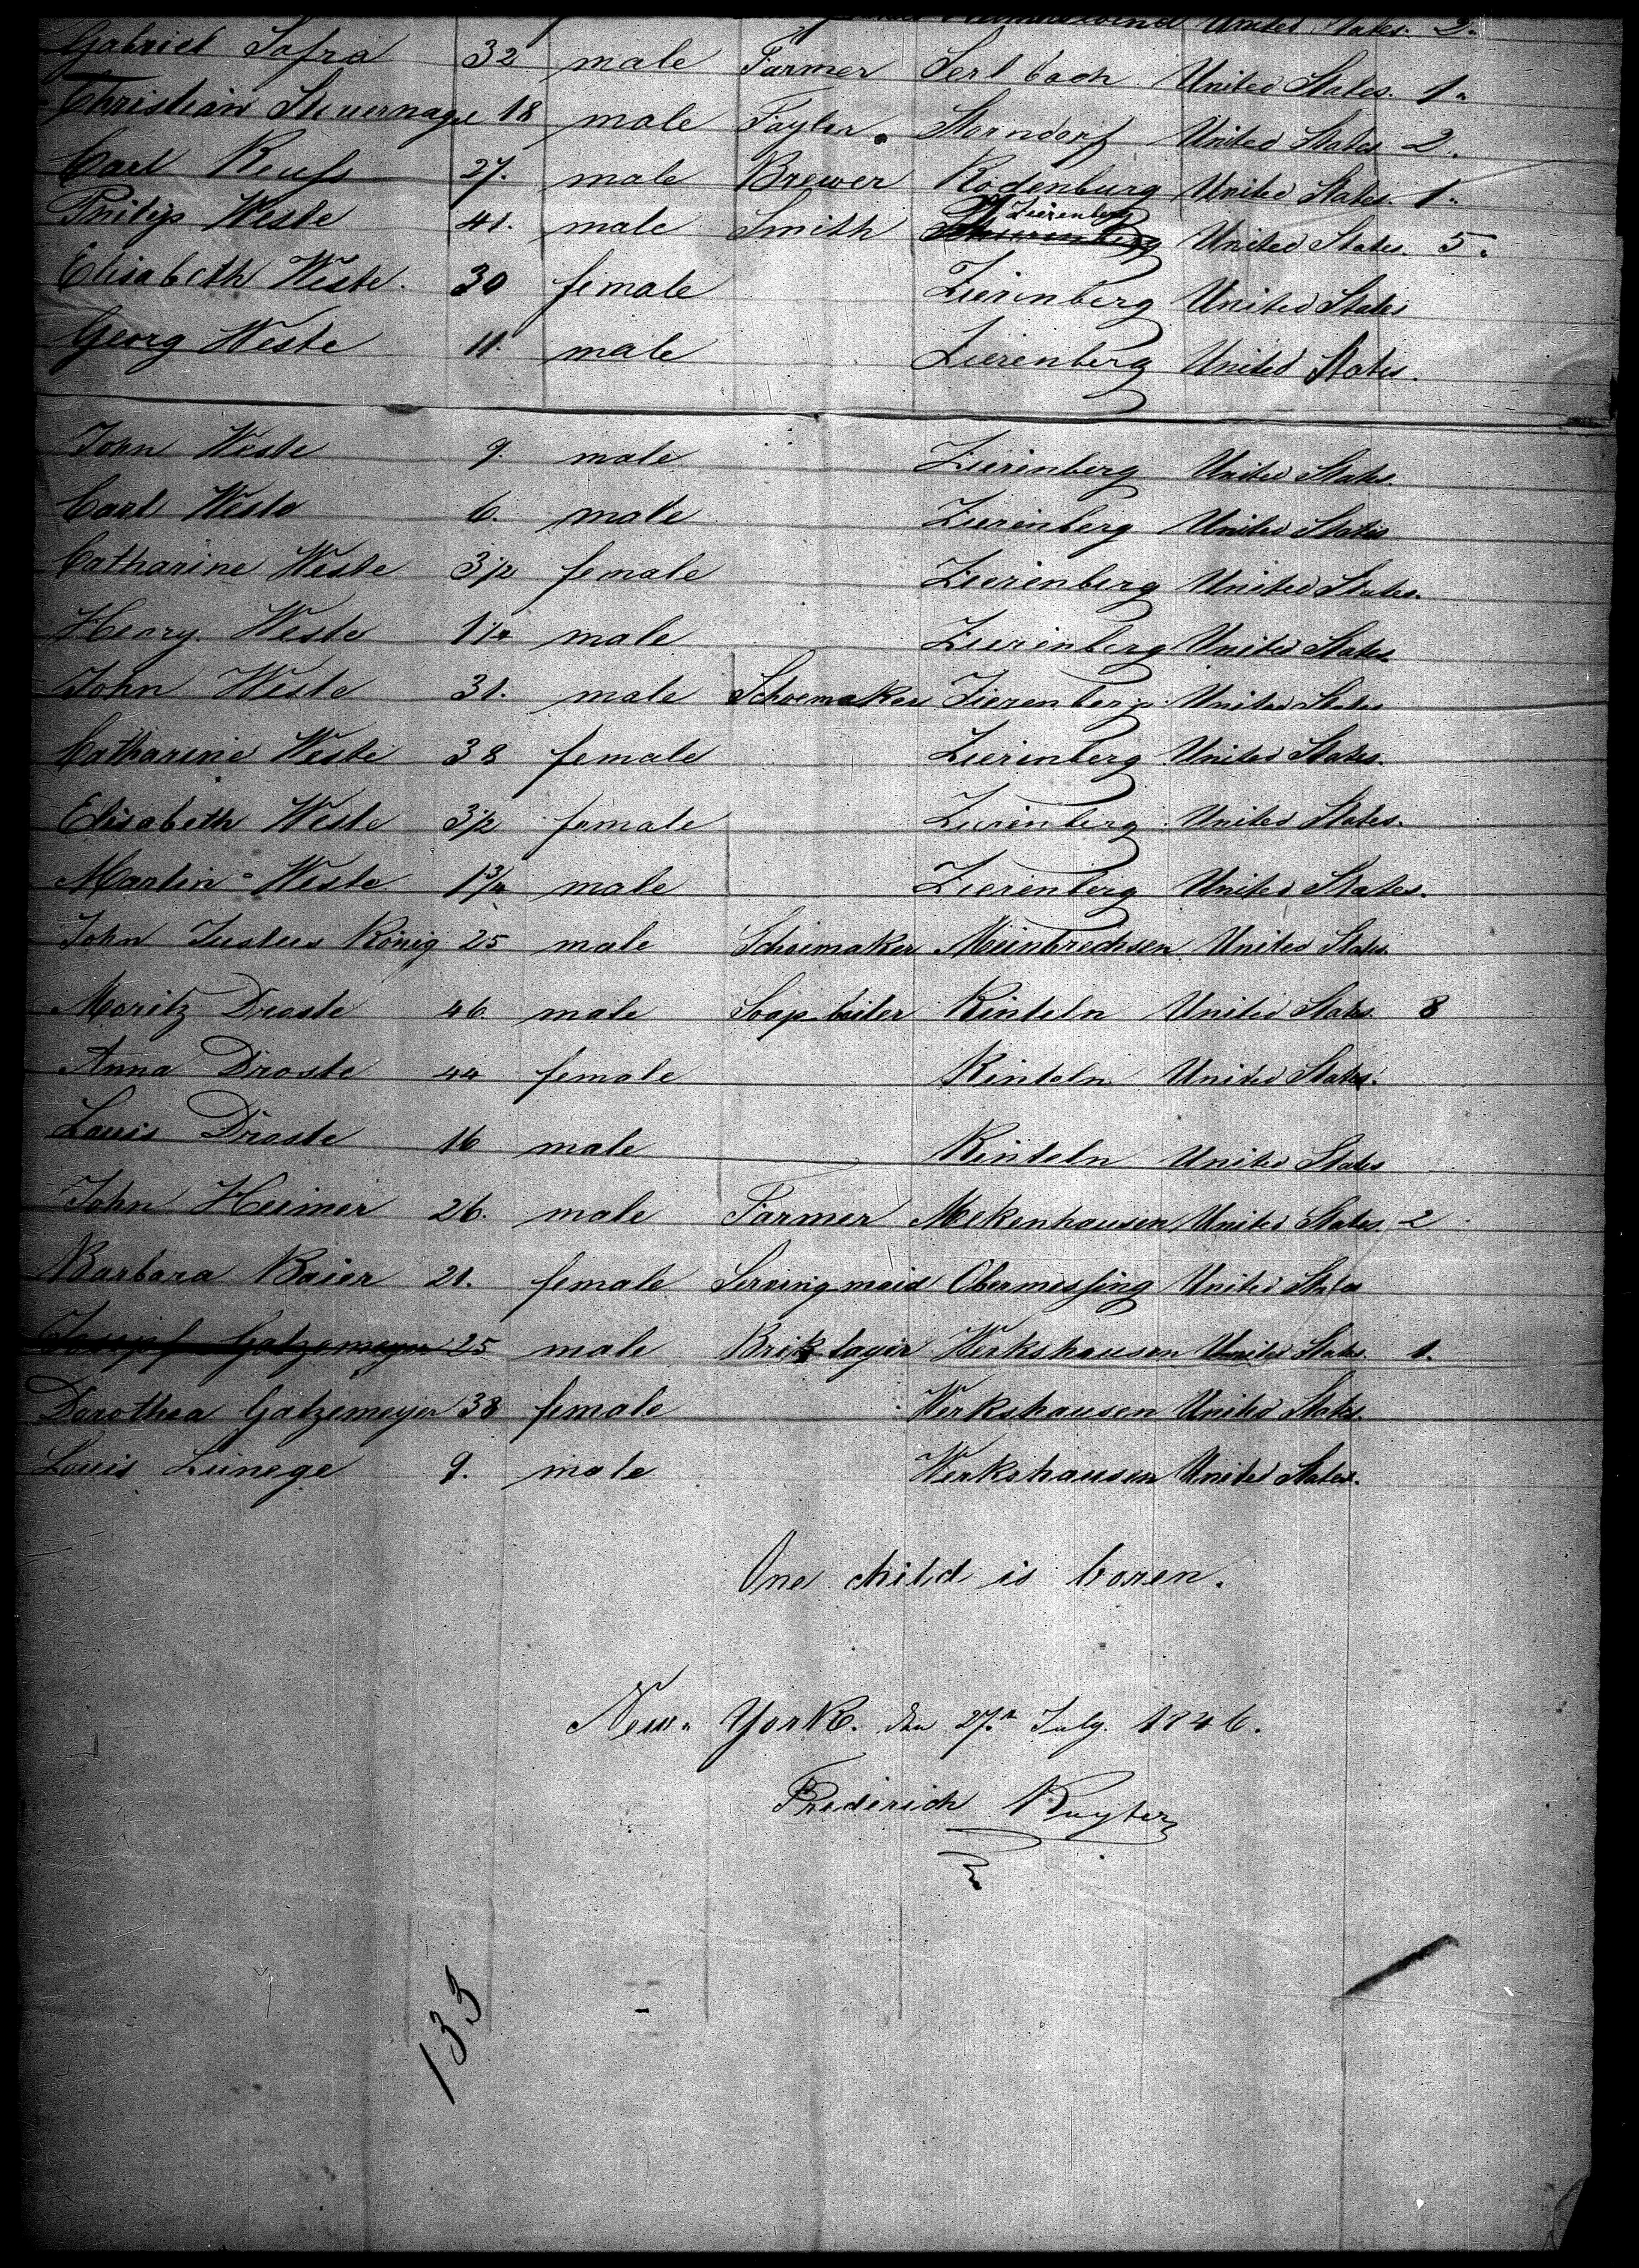 United States. 2.
Gabriel Safra 32 male Farmer Serlbach United States. 1.
Christian Steuernagel 18 male Tayler. Storndorf United States 2.
Carl Reuss 27. male Brewer Rodenburg United States. 1.
Zierenberg
Philip Weste 41. male Smith United States. 5.
Elisabeth Weste. 30 female Zierenberg United States
Georg Weste 11. male Zierenberg United States.
John Weste 9. male Zierenberg United States.
Carl Weste 6. male Zierenberg United States
Catharine Weste 3 1/2 female Zierenberg United States.
Henry Weste 1 1/4 male Zierenberg United States.
John Weste 31. male Schoemaker Zierenberg. United States
Catharine Weste 38 female Zierenberg United States.
Elisabeth Weste 3 1/2 female Zierenberg United States.
Martin Weste 1 3/4 male Zierenberg United States.
John Justus König 25 male Schoimaker Meinbrechsen United States.
Moritz Droste 46. male Soap boiler Rinteln United States. 8
Anna Droste 44 female Rinteln United States.
Louis Droste 16 male Rinteln United States
John Heimer 26. male Farmer Mekenhausen United States. 2
Barbara Baier 21. female Serving maid Obermessing United States
Joseph Gatzemeyer 25 male Brik layer Werkshausen United States. 1.
Dorothea Gatzemeyer 38 female Werkshausen United States.
Louis Linege 9. male Werkshausen United States.
One child is boren.
New-York. den 27.n July. 1846.
Frederich Ruyter
133